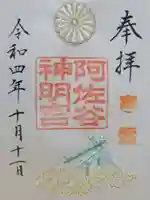 奉拝
阿佐谷
神明宮
令和四年十月十一日